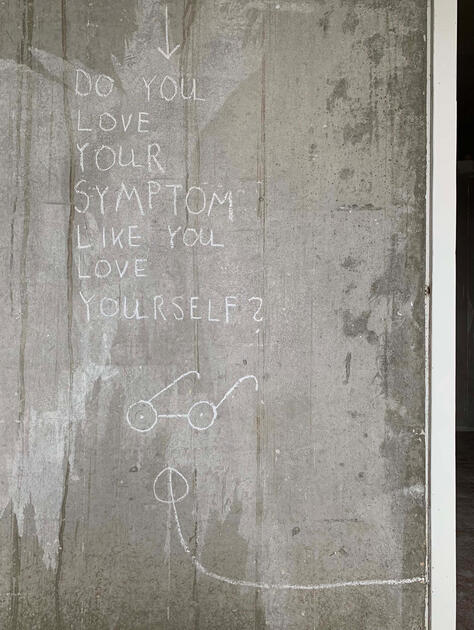 DO YOU
LOVE
YOUR
SYMPTOM
LIKE YOU
LOVE
YOURSELF?